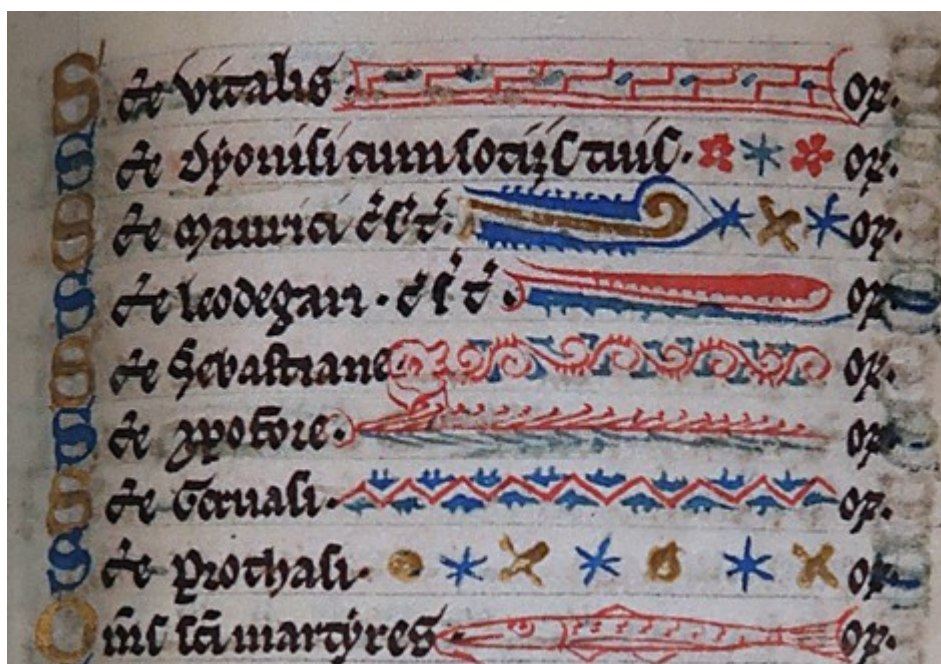 S de vitalis. or.
S de dyonisi cum socijs tuis. or.
S de maurici c̄ s̄ t̄. or.
S de leodegari. c̄ s̄ t̄. or.
S de sebastiane. or.
S de xpofore. or.
S de Geruasi. or.
S de prothasi. or.
Om̄s sc̄i martyres. or.